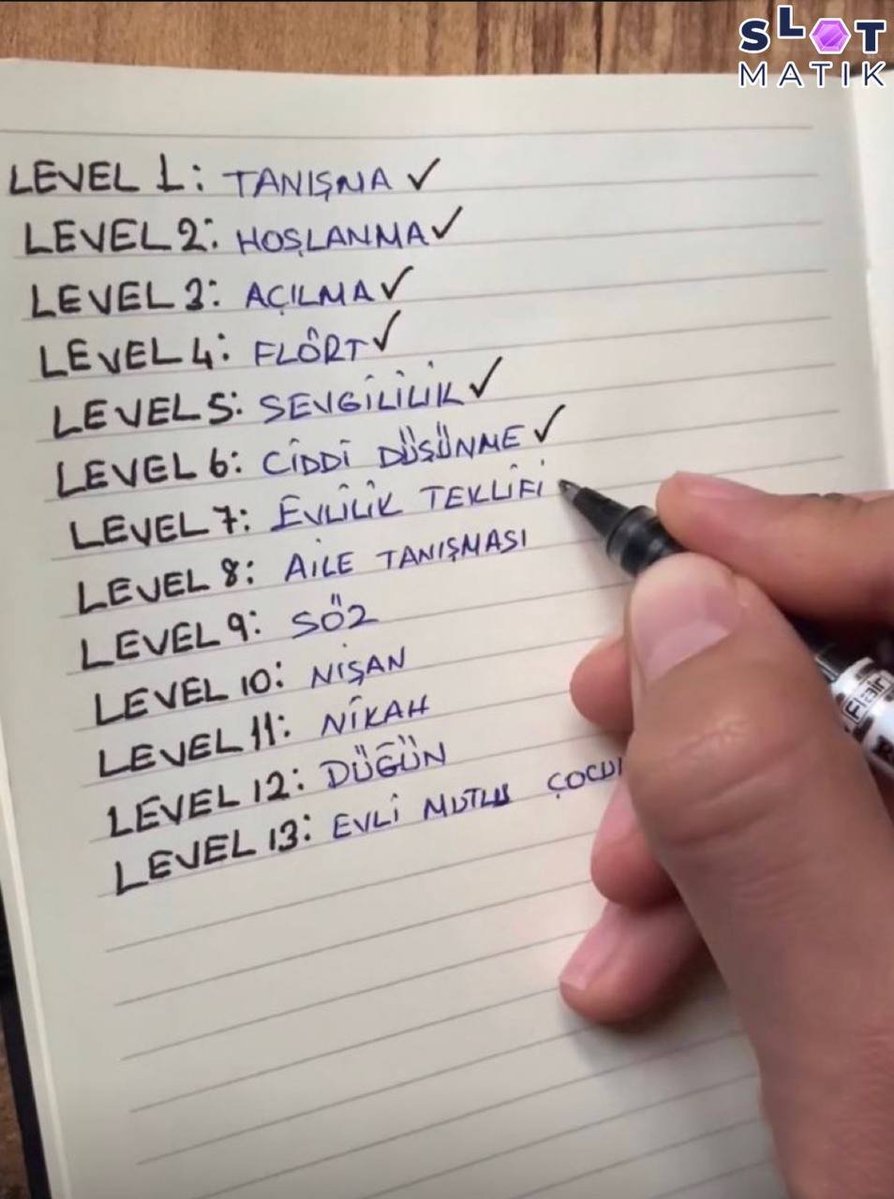 SLOT
MATIK
LEVEL 1: TANIŞMA ✓
LEVEL 2: HOŞLANMA ✓
LEVEL 3: AÇILMA ✓
LEVEL 4: FLÖRT ✓
LEVEL 5: SEVGİLİLİK ✓
LEVEL 6: CİDDİ DÜŞÜNME ✓
LEVEL 7: EVLİLİK TEKLİFİ
LEVEL 8: AİLE TANIŞMASI
LEVEL 9: SÖZ
LEVEL 10: NİŞAN
LEVEL 11: NİKAH
LEVEL 12: DÜĞÜN
LEVEL 13: EVLİ MUTLU
Flair